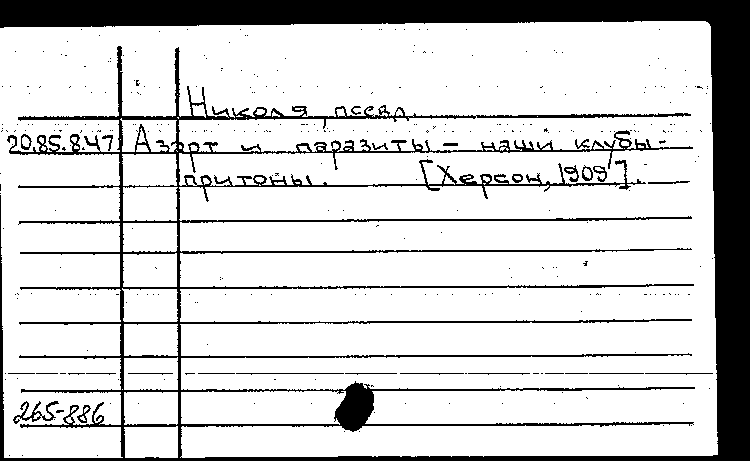 Николя, псевд.
20.85.8.47 Азарт и паразиты – наши клубы-
притоны. [Херсон, 1909].
265-886